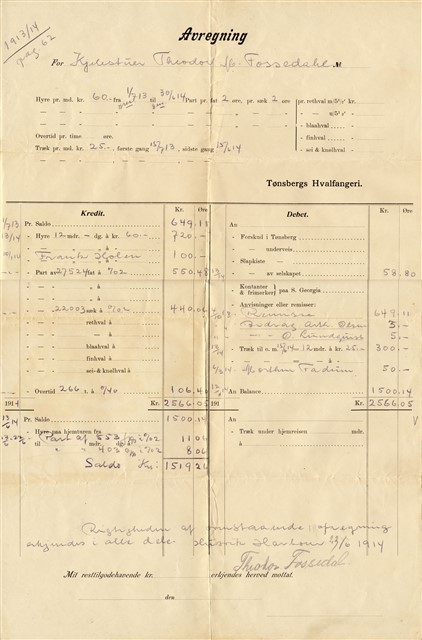 1913/14
pag 62
Avregning
For Kjelestuer Theodor Fossedahl №
Hyre pr. md. kr. 60.- fra 1/7 13 til 30/6 14 Part pr. fat 2 øre, pr. sæk 2 øre
pr. rethval m/5%' kr.
Overtid pr. time øre.
Træk pr. md. kr. 25.-, første gang 15/7 13, sidste gang 15/6 14
- blaahval
- finhval
- sei- & knølhval
Tønsbergs Hvalfangeri.
Kredit. Kr. Øre
Debet. Kr. Øre
Pr. Saldo 649.11
- Hyre 12 mdr. - dg. á kr. 60.- 720.-
100.-
- Part av 27524 fat á 0/02 550.48
- - - á
- - - 22003 sæk á 0/02 440.06
- rethval á
- blaahval á
- finhval á
- sei- & knølhval á
- Overtid 266 t. á 0/40 106.40
1914 Kr. 2566.05
An
- Forskud i Tønsberg
- underveis
- Slapkiste
- av selskapet 58.80
- Kontanter & frimerker paa S. Georgia
- Anvisninger eller remisser:
649.11
5.-
5.-
- Træk til o. m. 15/6 14 - 12 mdr. á kr. 25.- 300.-
50.-
An Balance 1500.14
191 Kr. 2566.05
Pr. Saldo 1500.14
- Hyre paa hjemturen fra
Part af 553 0/02 11.06
til mdr. dg.
403 0/02 8.06
Saldo Kr: 1519.26
An
- Træk under hjemreisen mdr.
á
Rigtigheden af omstaaende afregning
erkjendes i alle dele Harbour 1914
Theodor Fossedal.
Mit resttilgodehavende kr. erkjendes herved mottat.
den